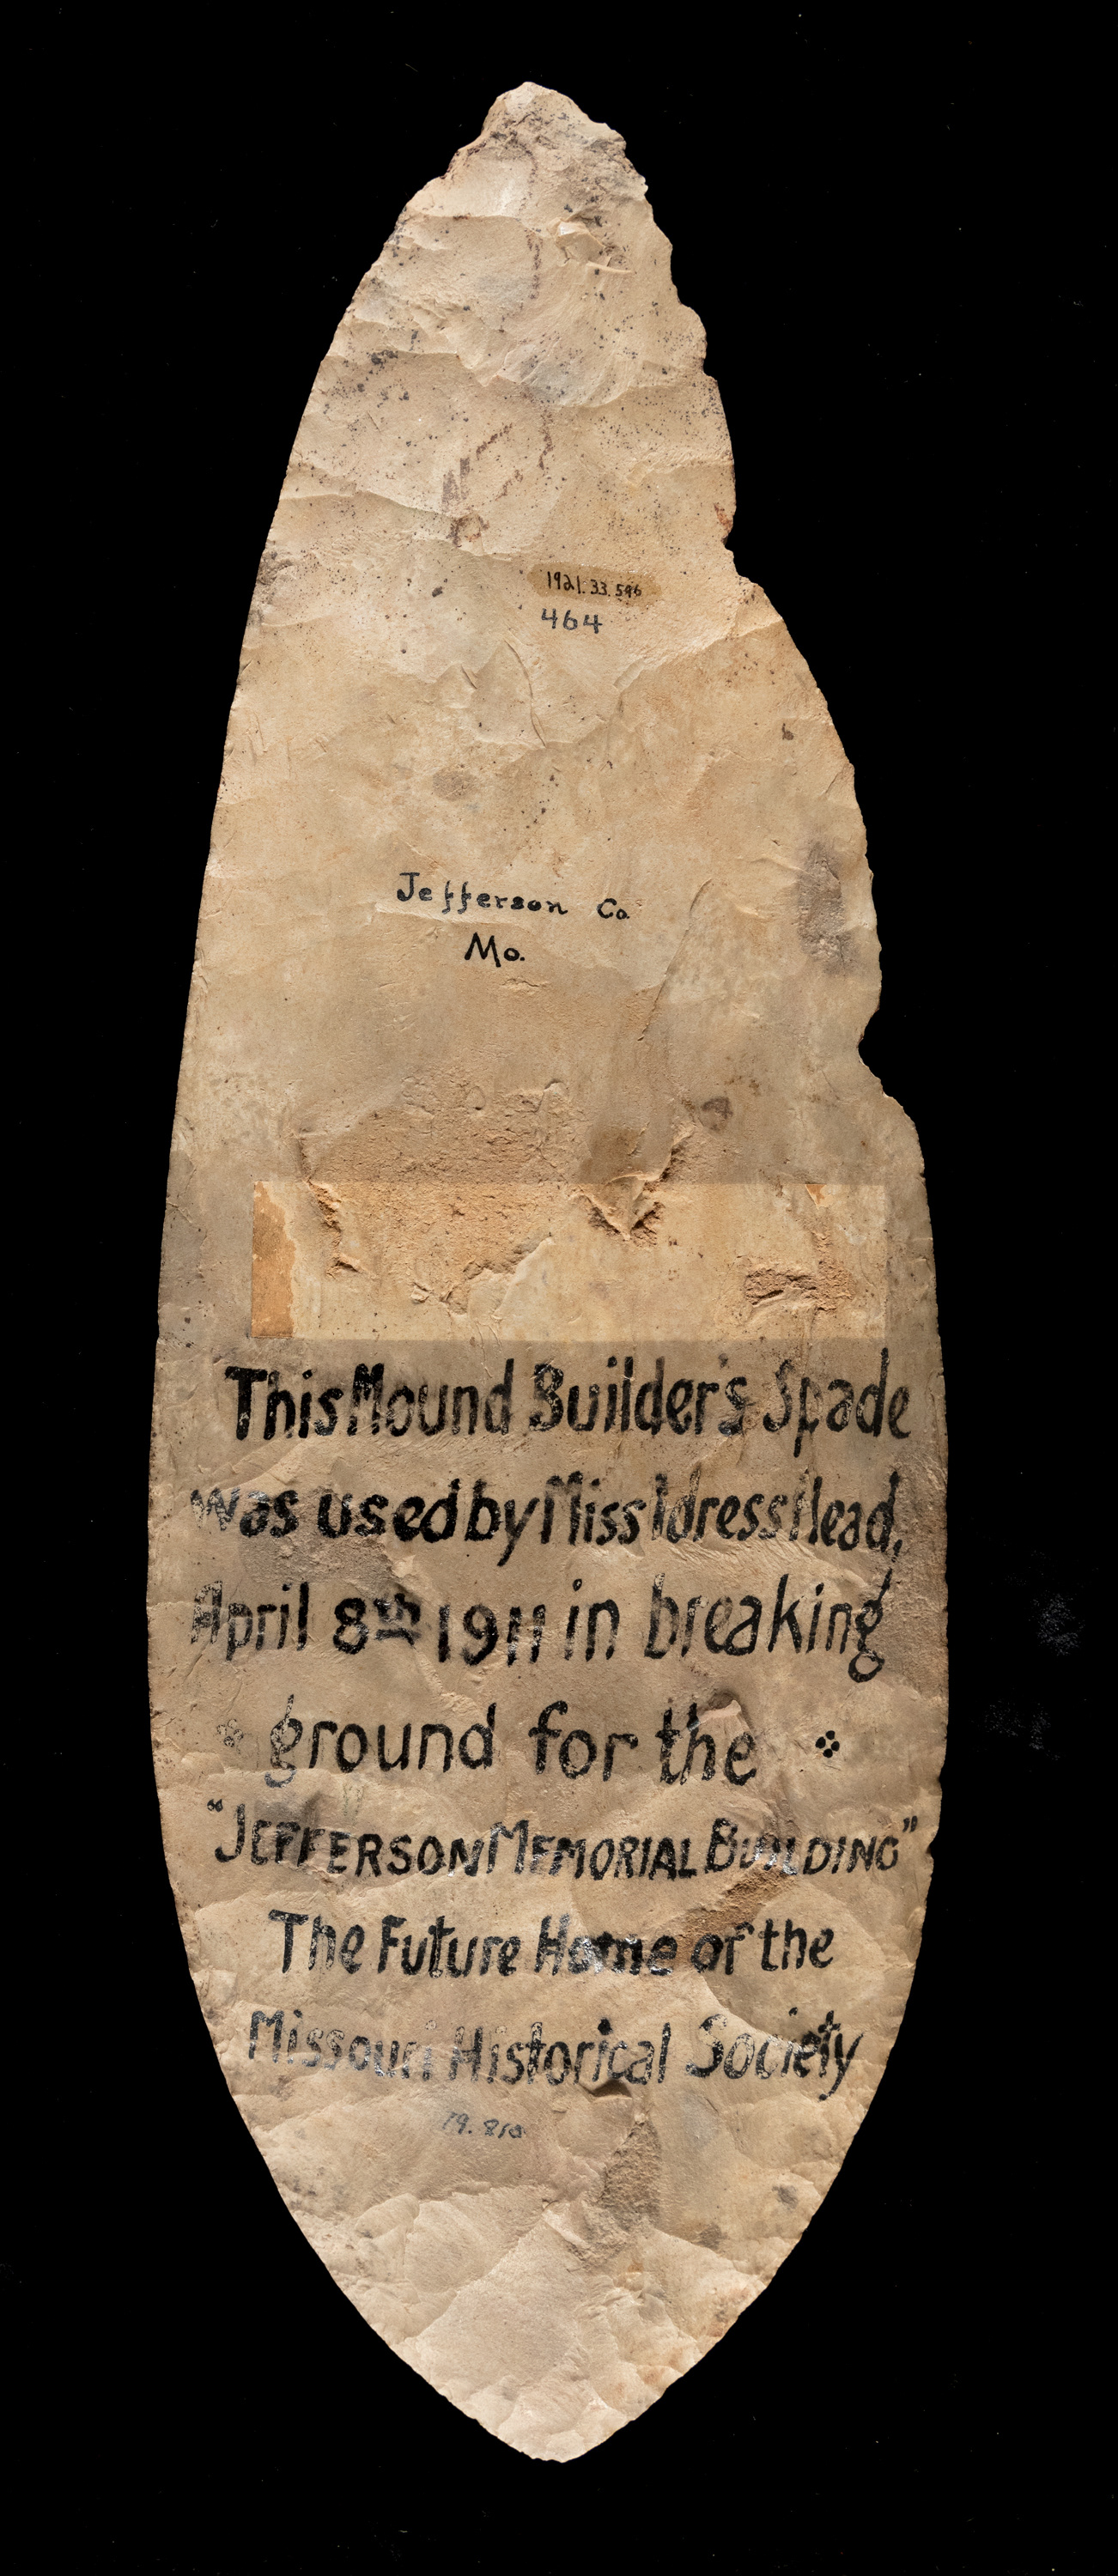 1921.33.596
464
Jefferson Co
Mo.
This Mound Builder's Spade
was used by Miss Idress Head,
April 8th 1911 in breaking
ground for the
"JEFFERSON MEMORIAL BUILDING"
The Future Home of the
Missouri Historical Society